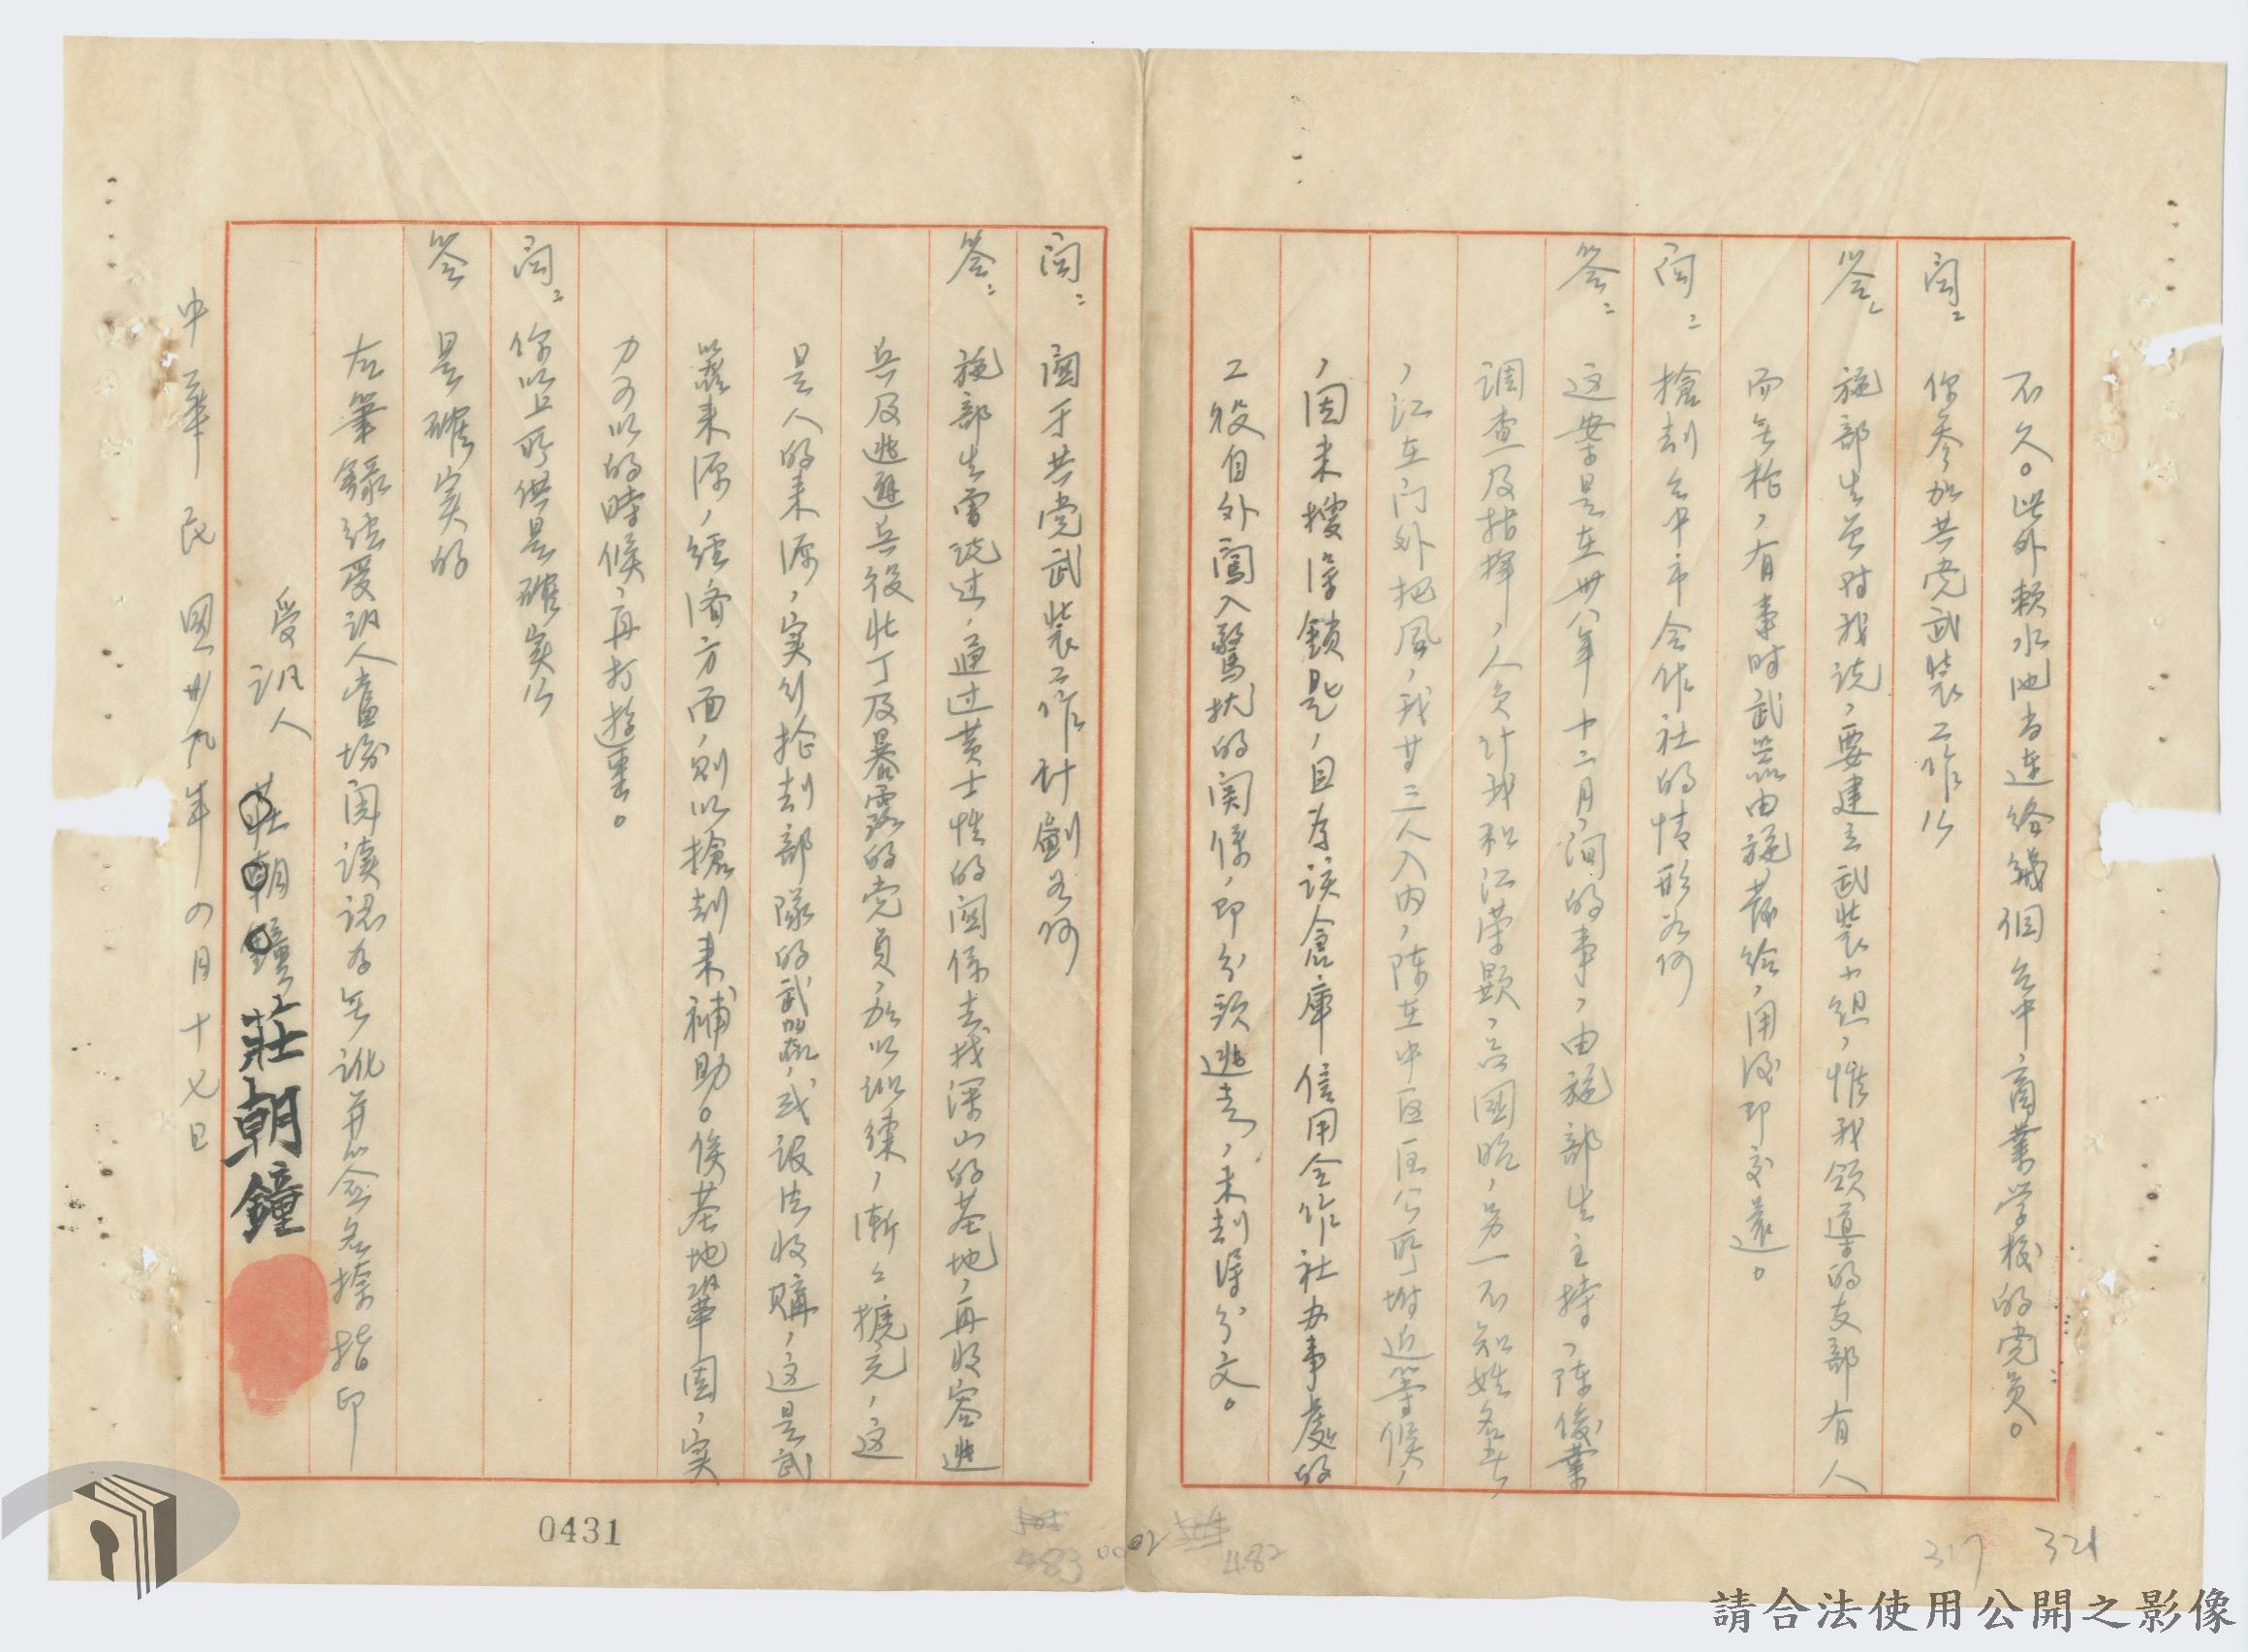 不久。此外賴水池尚連絡幾個台中商業学校的党员。
问： 你参加共党武装工作么
答： 施部生曾对我说，要建立武装小组，惟我领導的支部有人
而无枪，有事时武器由施發给，用後即交還。
问： 搶刧台中市合作社的情形为何
答： 这案是在卅八年十二月间的事，由施部生主持，陈俊業
调查及指揮，人员计我和江荣顯，呂國昭，另一不知姓名者，
，江在门外把風，我廿三人入内，陈在中区区公所附近等候，
，因未搜得鎖匙，且为该倉庫信用合作社办事處的
工役自外闖入驚扰的関係，即分頭逃走，未刧得分文。
问： 関于共党武装工作计劃为何
答： 施部生曾说过，通过黄士性的関係去找深山的基地，再收容逃
兵及逃避兵役壮丁及暴露的党員，加以训練，漸々擴充，这
是人的来源，实行抢刧部隊的武器，或设法收購，这是武
器来源，经济方面，则以搶刧来補助。俟基地鞏固，实
力可以的時候，再打游击。
问： 你以上所供是確实么
答 是確实的
右筆錄経受讯人當場閱读認为无訛并簽名捺指印
受讯人 莊朝鐘 莊朝鐘
中華民國卅九年四月十七日
0431
483
0002
482
317
321
請合法使用公開之影像